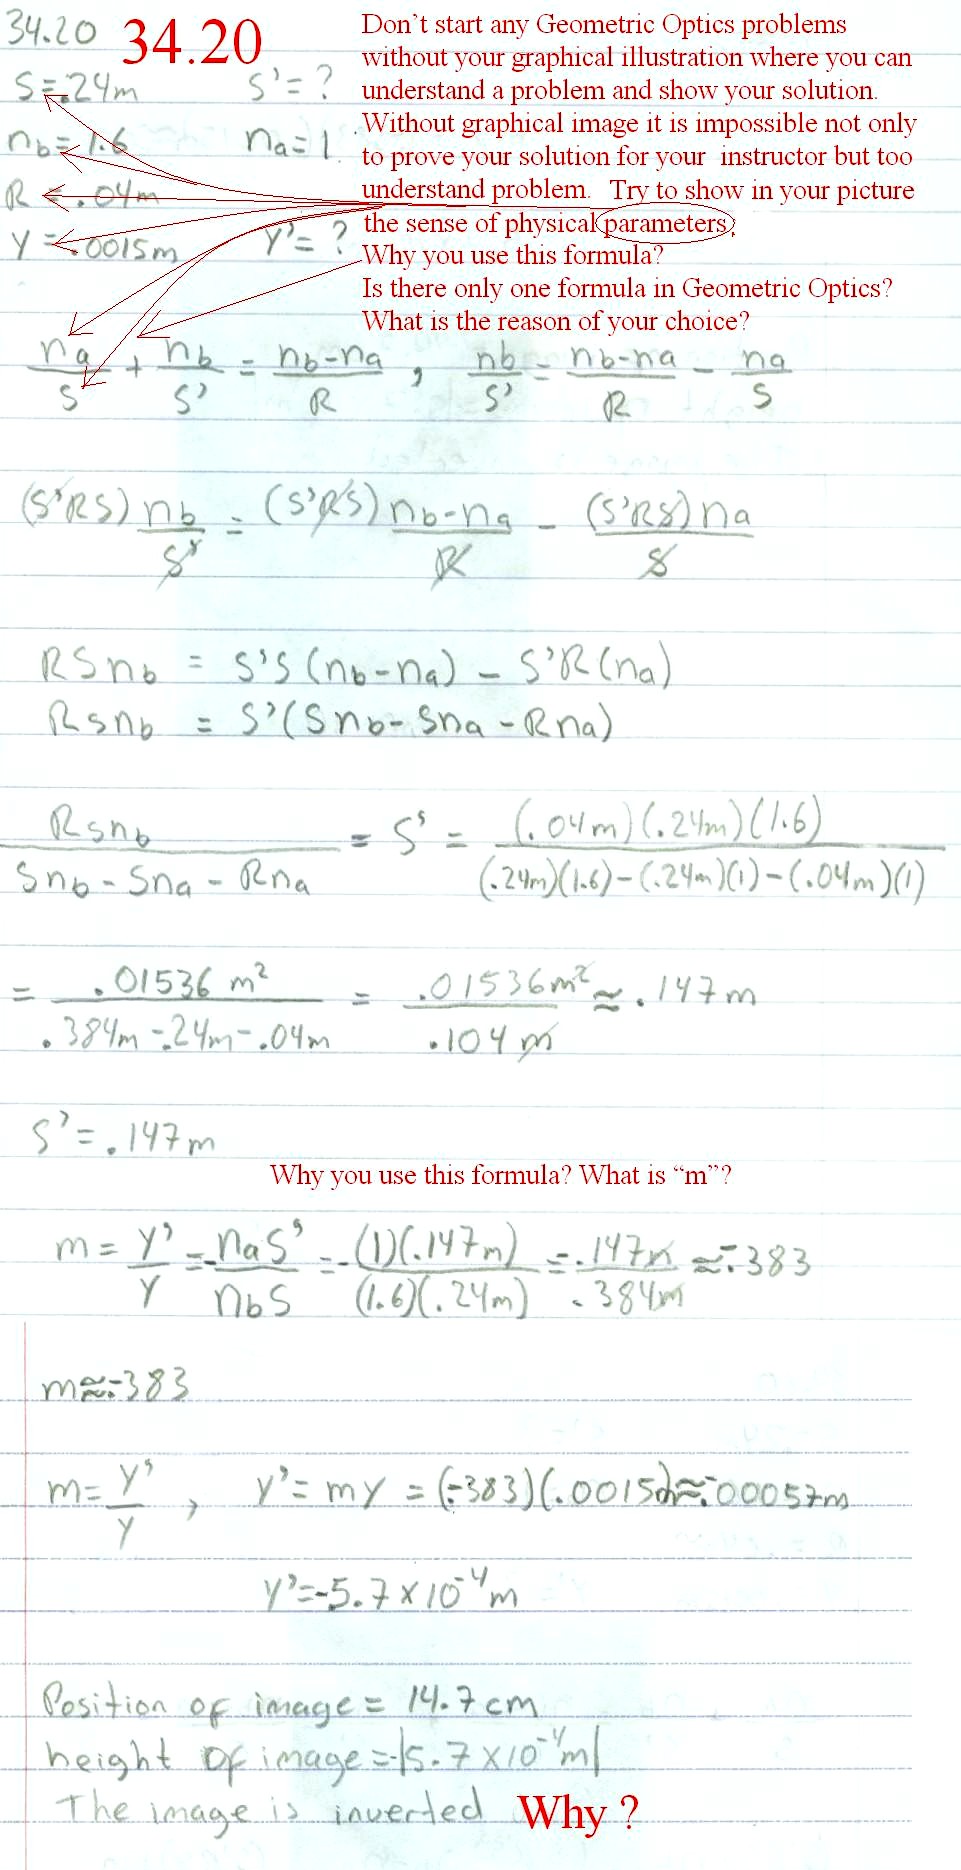 34.20 34.20
Don't start any Geometric Optics problems
without your graphical illustration where you can
understand a problem and show your solution.
Without graphical image it is impossible not only
to prove your solution for your instructor but too
understand problem. Try to show in your picture
the sense of physical parameters.
Why you use this formula?
Is there only one formula in Geometric Optics?
What is the reason of your choice?
S=.24m S'=?
nb=1.6 na=1
R=.04m
Y=.0015m Y'=?
na/S + nb/S' = nb-na/R , nb/S' = nb-na/R - na/S
(S'RS)nb/S' = (S'RS)nb-na/R - (S'RS)na/S
RSnb = S'S(nb-na) - S'R(na)
RSnb = S'(Snb-Sna-Rna)
RSnb/Snb-Sna-Rna = S' = (.04m)(.24m)(1.6)/(.24m)(1.6)-(.24m)(1)-(.04m)(1)
= .01536 m²/.384m-.24m-.04m = .01536m²/.104m ≈ .147m
S'=.147m
Why you use this formula? What is "m"?
m=Y'/Y=-naS'/nbS=-(1)(.147m)/(1.6)(.24m)=-.147m/.384m≈-.383
m≈-.383
m=Y'/Y , Y'=my=(-.383)(.0015m)≈-.00057m
Y'=-5.7×10⁻⁴m
Position of image = 14.7cm
height of image=|-5.7×10⁻⁴m|
The image is inverted Why ?